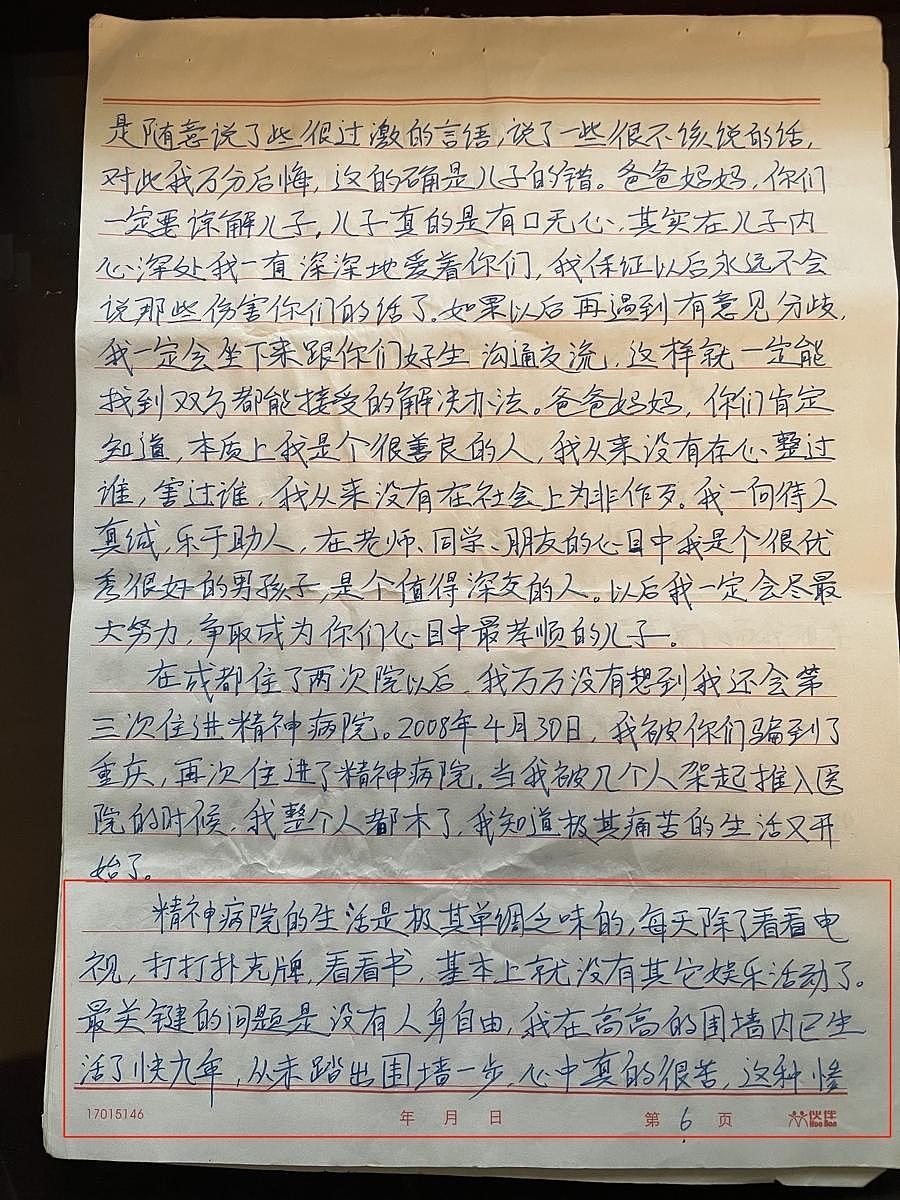 是随意说了些很过激的言语,说了一些很不该说的话,
对此我万分后悔,这的确是儿子的错。爸爸妈妈,你们
一定要谅解儿子,儿子真的是有口无心,其实在儿子内
心深处我一有深深地爱着你们,我保证以后永远不会
说那些伤害你们的话了。如果以后再遇到有意见分歧,
我一定会坐下来跟你们好生沟通交流,这样就一定能
找到双方都能接受的解决办法。爸爸妈妈,你们肯定
知道,本质上我是个很善良的人,我从来没有存心整过
谁,害过谁,我从来没有在社会上为非作歹。我一向待人
真诚,乐于助人,在老师、同学、朋友的心目中我是个很优
秀很好的男孩子,是个值得深交的人。以后我一定会尽最
大努力,争取成为你们心目中最孝顺的儿子。
在成都住了两次院以后,我万万没有想到我还会第
三次住进精神病院。2008年4月30日,我被你们骗到了
重庆,再次住进了精神病院。当我被几个人架起推入医
院的时候,我整个人都木了,我知道极其痛苦的生活又开
始了。
精神病院的生活是极其单绸乏味的,每天除了看看电
视,打打扑克牌,看看书,基本上就没有其它娱乐活动了。
最关键的问题是没有人身自由,我在高高的围墙内已生
活了快九年,从未踏出围墙一步,心中真的很苦,这种惨
17015146 年 月 日 第 6 页 伙伴
Hoo Ban